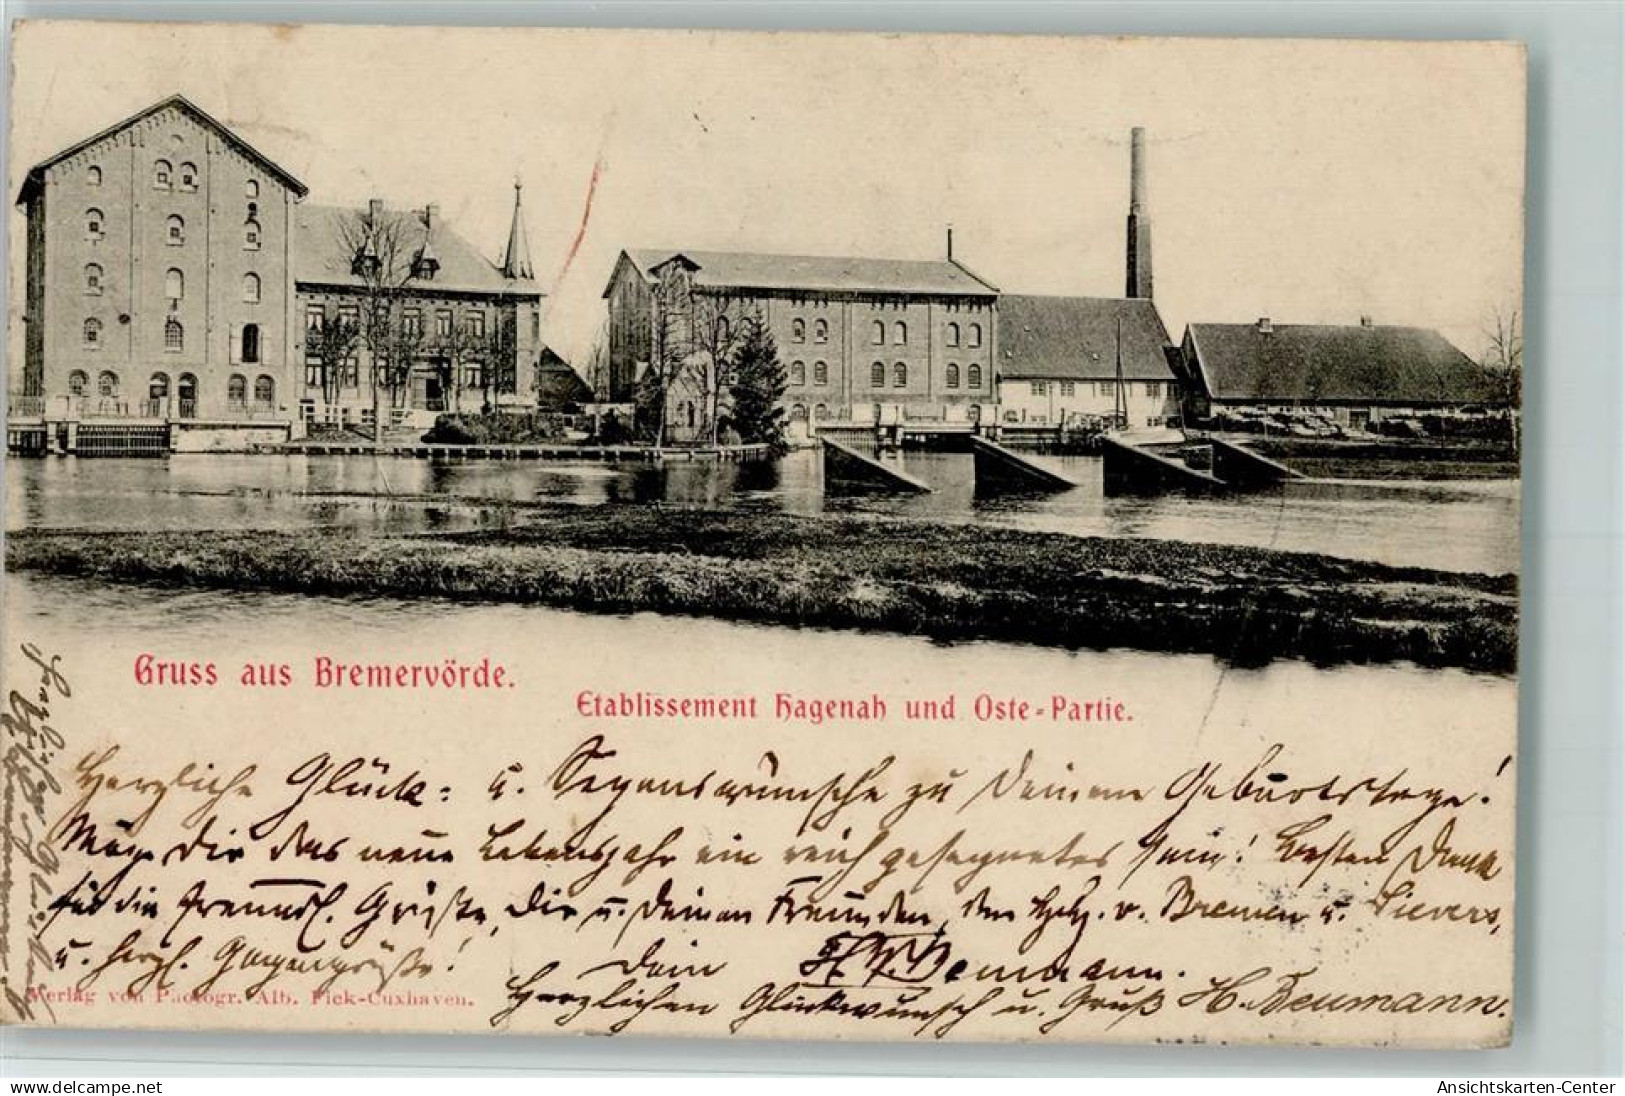 Gruss aus Bremervörde.
Etablissement Hagenah und Oste-Partie.
Herzliche Glück- u. Segenswünsche zu Deinem Geburtstage!
Möge Dir das neue Lebensjahr ein reich gesegnetes sein! Besten Dank
für die freundl. Grüße, Dir u. Deinen Freunden, den v. Bremen u. Sievers,
u. herzl. Gegengrüße!
Dein
Herzlichen Glückwunsch u. Gruß H. Beumann.
Herzlichen Glückwunsch
Verlag von Photogr. Alb. Pick-Cuxhaven.
www.delcampe.net
Ansichtskarten-Center